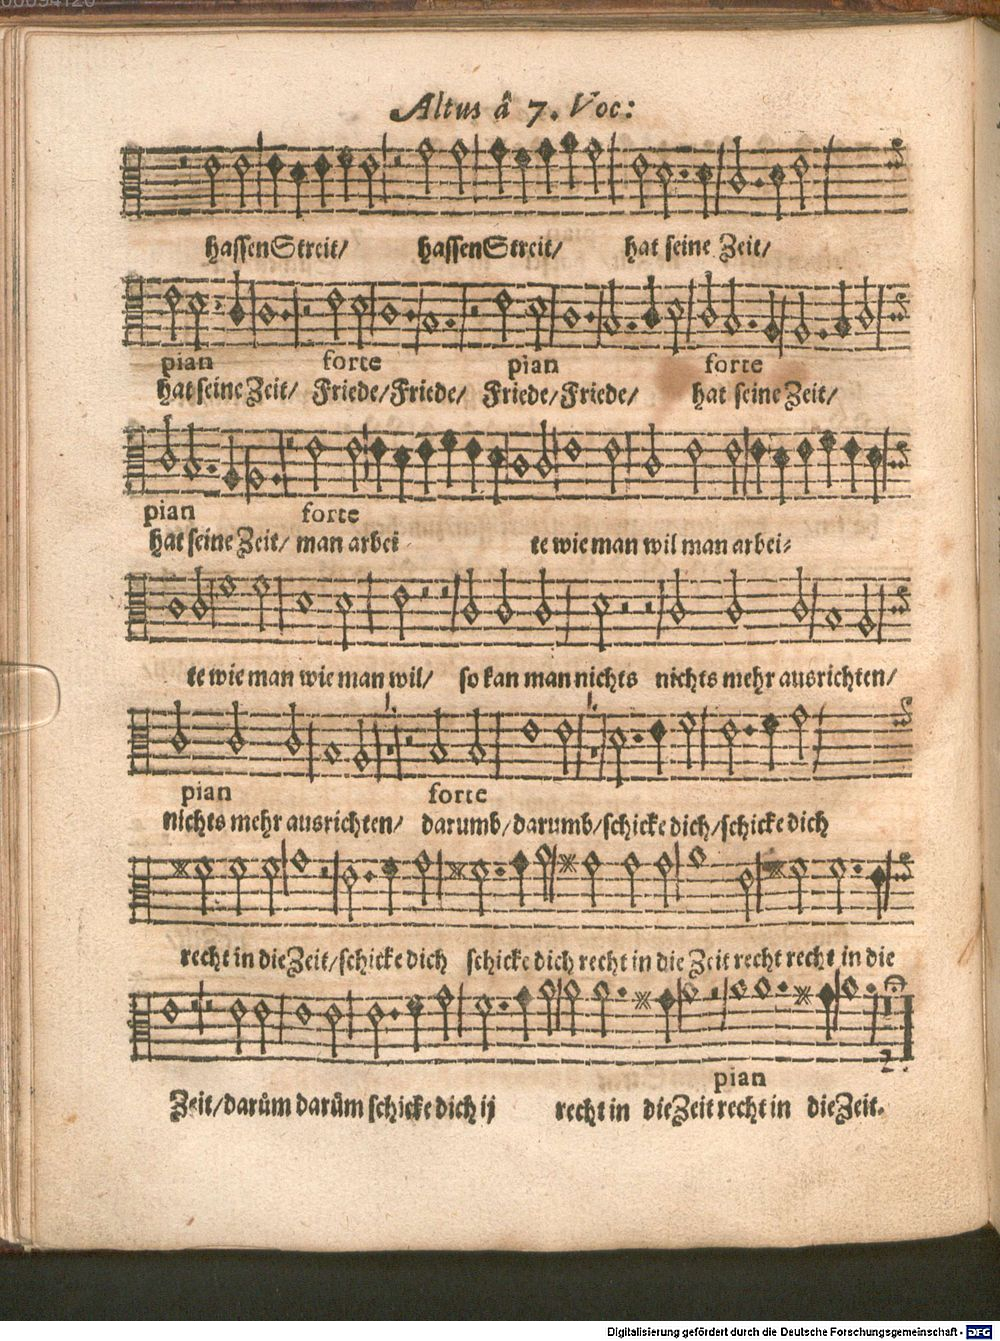 Altus â 7. Voc:
hassen Streit/ hassen Streit/ hat seine Zeit/
pian forte pian forte
hat seine Zeit/ Friede/ Friede/ Friede/ Friede/ hat seine Zeit/
pian forte
hat seine Zeit/ man arbei te wie man wil man arbei-
te wie man wie man wil/ so kan man nichts nichts mehr ausrichten/
pian forte
nichts mehr ausrichten/ darumb/ darumb/ schicke dich/ schicke dich
recht in die Zeit/ schicke dich schicke dich recht in die Zeit recht recht in die
2.
pian
Zeit/ darům darům schicke dich ij recht in die Zeit recht in die Zeit.
Digitalisierung gefördert durch die Deutsche Forschungsgemeinschaft - DFG